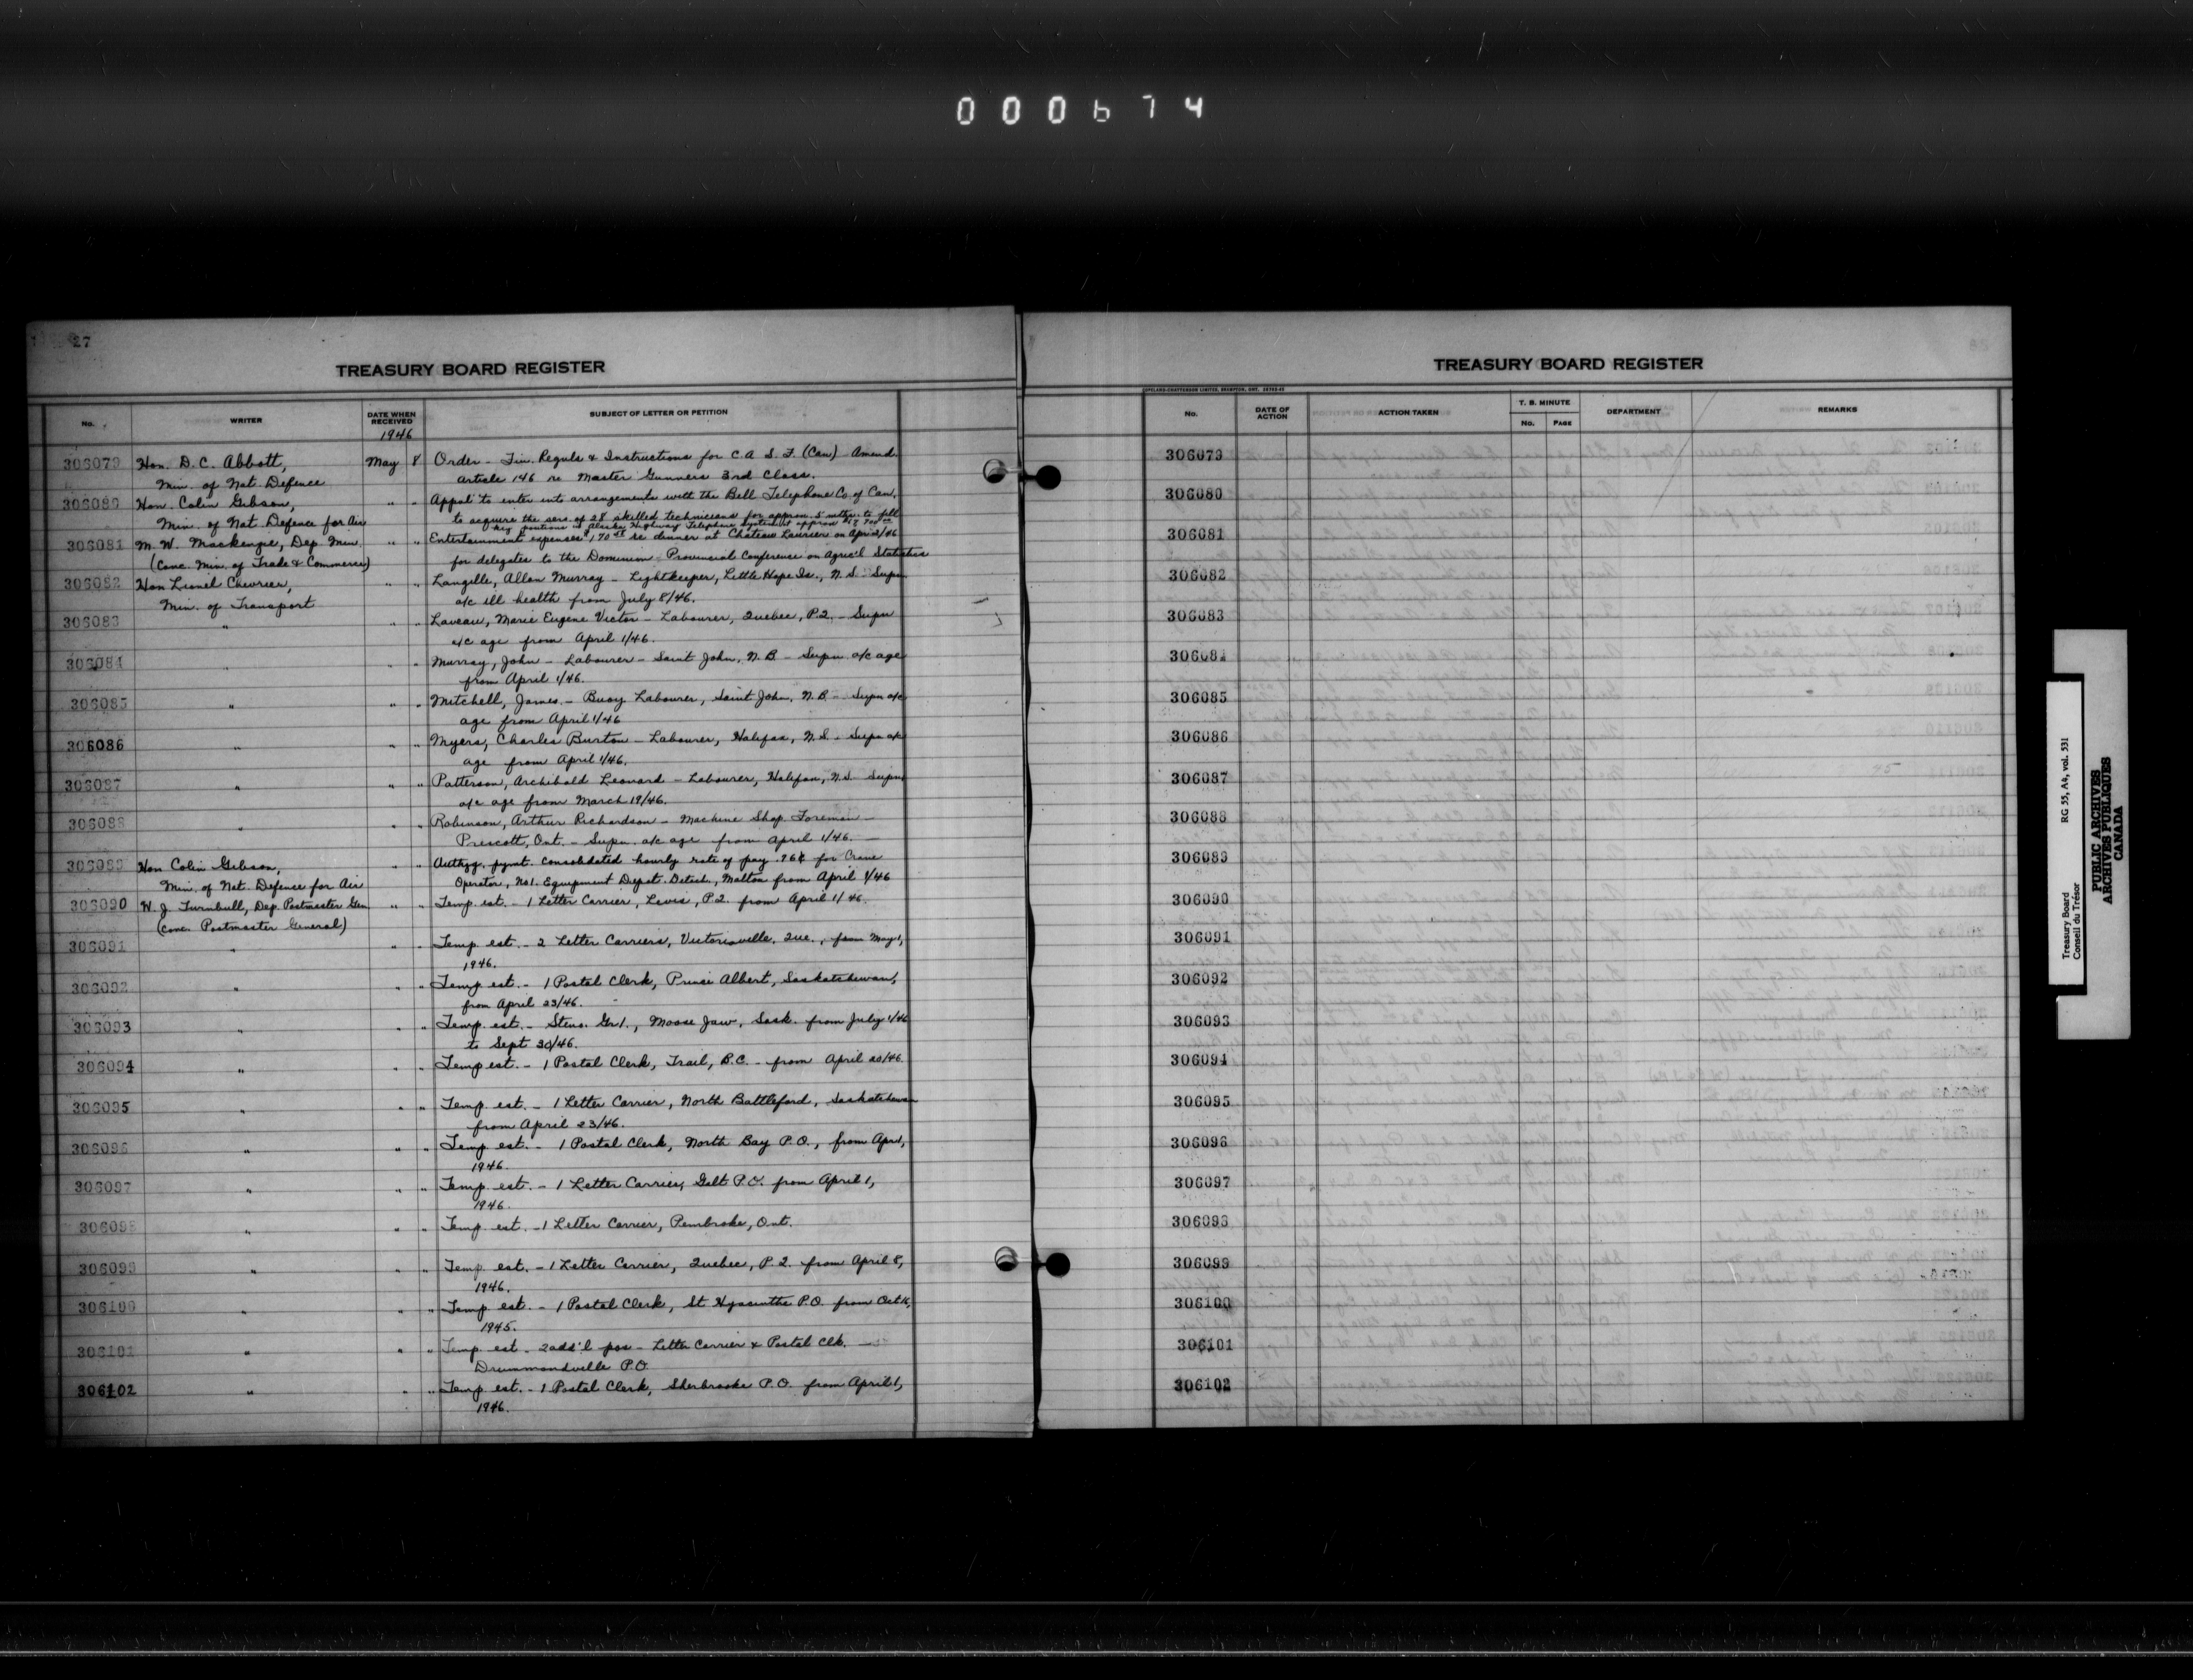 000674
27
TREASURY BOARD REGISTER
No. WRITER DATE WHEN RECEIVED SUBJECT OF LETTER OR PETITION
1946
306079 Hon. D. C. Abbott, May 8 Order - Fin. Reguls & Instructions for C.A.S.F. (Can) Amend.
Min. of Nat. Defence article 146 re Master Gunners 3rd Class.
306080 Hon. Colin Gibson, " " Appal to enter into arrangements with the Bell Telephone Co. of Can.
Min. of Nat. Defence for Air to acquire the serv. of 28 skilled technicians for approx. 5 mths. to fill
key positions in Alaska Highway Telephone System at approx
306081 M. W. Mackenzie, Dep. Min. " " Entertainment expenses re dinner at Chateau Laurier on Apr
(Conc. Min. of Trade & Commerce) for delegates to the Dominion-Provincial Conference on Agric'l Statistics
306082 Hon Lionel Chevrier, " " Langille, Allan Murray - Lightkeeper, Little Hope Is., N.S. Supn
Min. of Transport a/c ill health from July 8/46.
306083 " " " Laveau, Marie Eugene Victor - Labourer, Quebec, P.Q. - Supn
a/c age from April 1/46.
306084 " " " Murray, John - Labourer - Saint John, N.B. - Supn. a/c age
from April 1/46.
306085 " " " Mitchell, James - Buoy Labourer, Saint John, N.B - Supn a/c
age from April 1/46
306086 " " " Myers, Charles Burton - Labourer, Halifax, N.S. - Supn a/c
age from April 1/46.
306087 " " " Patterson, Archibald Leonard - Labourer, Halifax, N.S. Supn
a/c age from March 19/46.
306088 " " " Robinson, Arthur Richardson - Machine Shop Foreman -
Prescott, Ont. - Supn. a/c age from April 1/46.
306089 Hon Colin Gibson, " " Authzg. pymt. consolidated hourly rate of pay .76¢ for Crane
Min. of Nat. Defence for Air Operator, No1. Equipment Depot Detach., Malton from April 1/46
306090 W. J. Turnbull, Dep. Postmaster Gen " " Temp. est. - 1 Letter Carrier, Levis, P.Q. from April 1/46.
(Conc. Postmaster General)
306091 " " " Temp est. - 2 Letter Carriers, Victoriaville, Que., from May 1,
1946.
306092 " " " Temp est. - 1 Postal Clerk, Prince Albert, Saskatchewan,
from April 23/46.
306093 " " " Temp. est. - Steno. Gr 1., Moose Jaw, Sask. from July 1/46
to Sept 30/46.
306094 " " " Temp est. - 1 Postal Clerk, Trail, B.C. - from April 20/46.
306095 " " " Temp. est. - 1 Letter Carrier, North Battleford, Saskatchewan
from April 23/46.
306096 " " " Temp. est. - 1 Postal Clerk, North Bay P.O., from Apr 1,
1946.
306097 " " " Temp. est. - 1 Letter Carrier, Galt P.O. from April 1,
1946.
306098 " " " Temp. est. - 1 Letter Carrier, Pembroke, Ont.
306099 " " " Temp. est. - 1 Letter Carrier, Quebec, P.Q. from April 8,
1946.
306100 " " " Temp est. - 1 Postal Clerk, St Hyacinthe P.O. from Oct 16,
1945.
306101 " " " Temp. est. - 2 add'l pos - Letter Carrier & Postal Clk. -
Drummondville P.O.
306102 " " " Temp. est. - 1 Postal Clerk, Sherbrooke P.O. from April 1,
1946.
TREASURY BOARD REGISTER
COPELAND-CHATTERSON LIMITED, BRAMPTON, ONT.
No. DATE OF ACTION ACTION TAKEN T. B. MINUTE No. PAGE DEPARTMENT REMARKS
306079
306080
306081
306082
306083
306084
306085
306086
306087
306088
306089
306090
306091
306092
306093
306094
306095
306096
306097
306098
306099
306100
306101
306102
Treasury Board RG 55, A4, vol. 531
Conseil du Trésor
PUBLIC ARCHIVES
ARCHIVES PUBLIQUES
CANADA